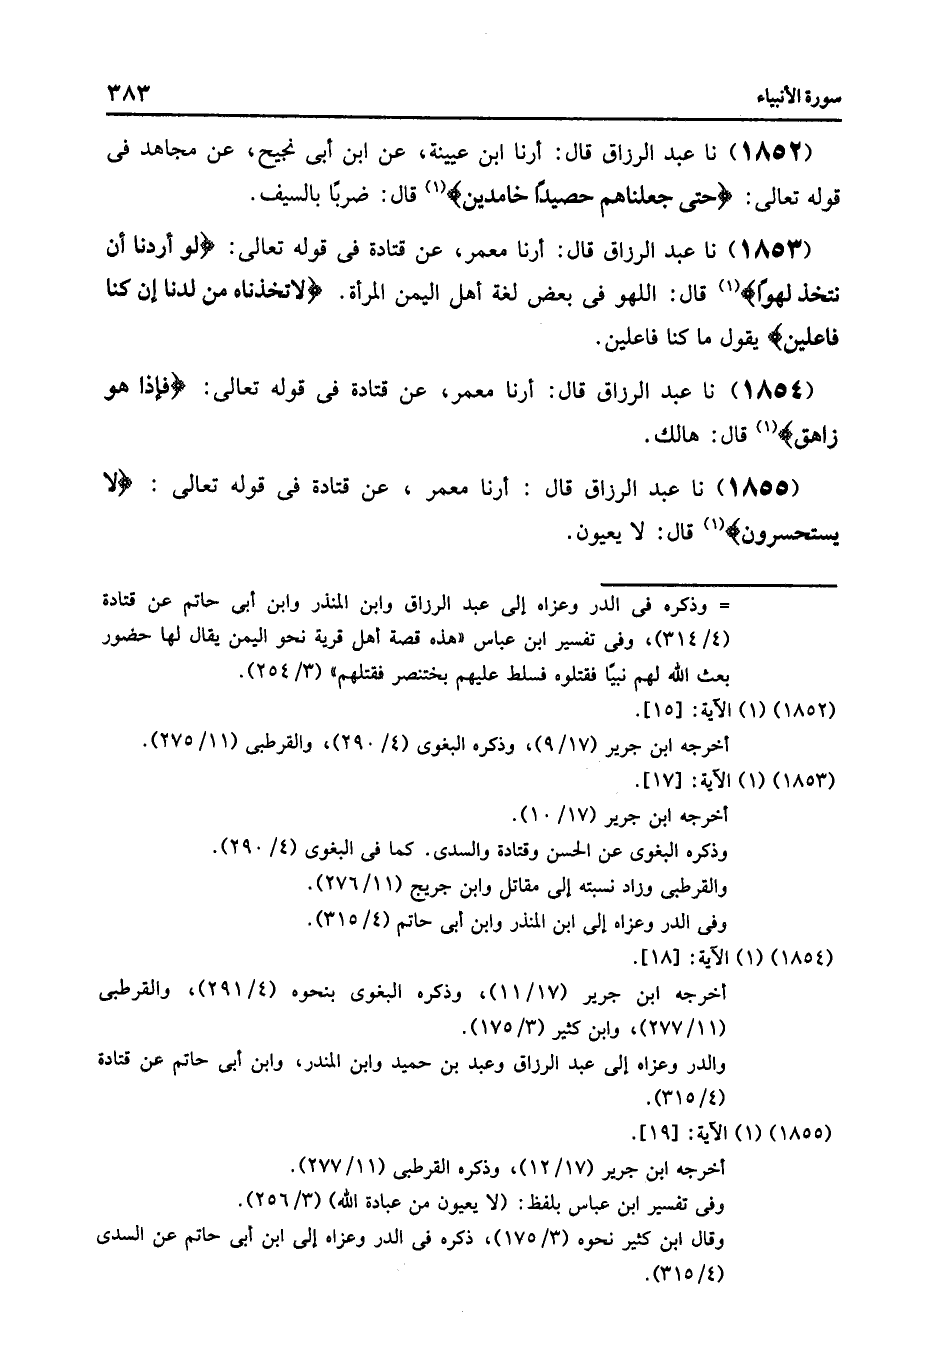 سورة الأنبياء ٣٨٣
(١٨٥٢) نا عبد الرزاق قال: أرنا ابن عيينة، عن ابن أبى نجيح، عن مجاهد فى
قوله تعالى: ﴿حتى جعلناهم حصيدًا خامدين﴾(١) قال: ضربًا بالسيف.
(١٨٥٣) نا عبد الرزاق قال: أرنا معمر، عن قتادة فى قوله تعالى: ﴿لو أردنا أن
نتخذ لهوًا﴾(١) قال: اللهو فى بعض لغة أهل اليمن المرأة. ﴿لاتخذناه من لدنا إن كنا
فاعلين﴾ يقول ما كنا فاعلين.
(١٨٥٤) نا عبد الرزاق قال: أرنا معمر، عن قتادة فى قوله تعالى: ﴿فإذا هو
زاهق﴾(١) قال: هالك.
(١٨٥٥) نا عبد الرزاق قال : أرنا معمر ، عن قتادة فى قوله تعالى : ﴿لا
يستحسرون﴾(١) قال: لا يعيون.
= وذكره فى الدر وعزاه إلى عبد الرزاق وابن المنذر وابن أبى حاتم عن قتادة
(٤/ ٣١٤)، وفى تفسير ابن عباس «هذه قصة أهل قرية نحو اليمن يقال لها حضور
بعث الله لهم نبيًا فقتلوه فسلط عليهم بختنصر فقتلهم» (٣/ ٢٥٤).
(١٨٥٢) (١) الآية: [١٥].
أخرجه ابن جرير (١٧/ ٩)، وذكره البغوى (٤/ ٢٩٠)، والقرطبى (١١/ ٢٧٥).
(١٨٥٣) (١) الآية: [١٧].
أخرجه ابن جرير (١٧/ ١٠).
وذكره البغوى عن الحسن وقتادة والسدى. كما فى البغوى (٤/ ٢٩٠).
والقرطبى وزاد نسبته إلى مقاتل وابن جريج (١١/ ٢٧٦).
وفى الدر وعزاه إلى ابن المنذر وابن أبى حاتم (٤/ ٣١٥).
(١٨٥٤) (١) الآية: [١٨].
أخرجه ابن جرير (١٧/ ١١)، وذكره البغوى بنحوه (٤/ ٢٩١)، والقرطبى
(١١/ ٢٧٧)، وابن كثير (٣/ ١٧٥).
والدر وعزاه إلى عبد الرزاق وعبد بن حميد وابن المندر، وابن أبى حاتم عن قتادة
(٤/ ٣١٥).
(١٨٥٥) (١) الآية: [١٩].
أخرجه ابن جرير (١٧/ ١٢)، وذكره القرطبى (١١/ ٢٧٧).
وفى تفسير ابن عباس بلفظ: (لا يعيون من عبادة الله) (٣/ ٢٥٦).
وقال ابن كثير نحوه (٣/ ١٧٥)، ذكره فى الدر وعزاه إلى ابن أبى حاتم عن السدى
(٤/ ٣١٥).